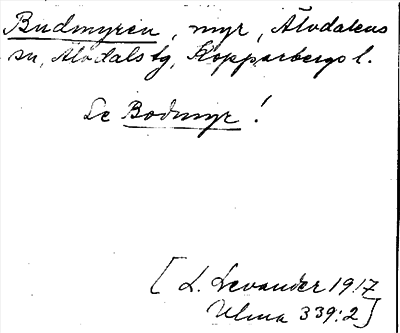 Budmyren, myr, Älvdalens
sn, Älvdals tg, Kopparbergs l.
Se Bodmyr!
[L. Levander 1917
Ulma 339:2]